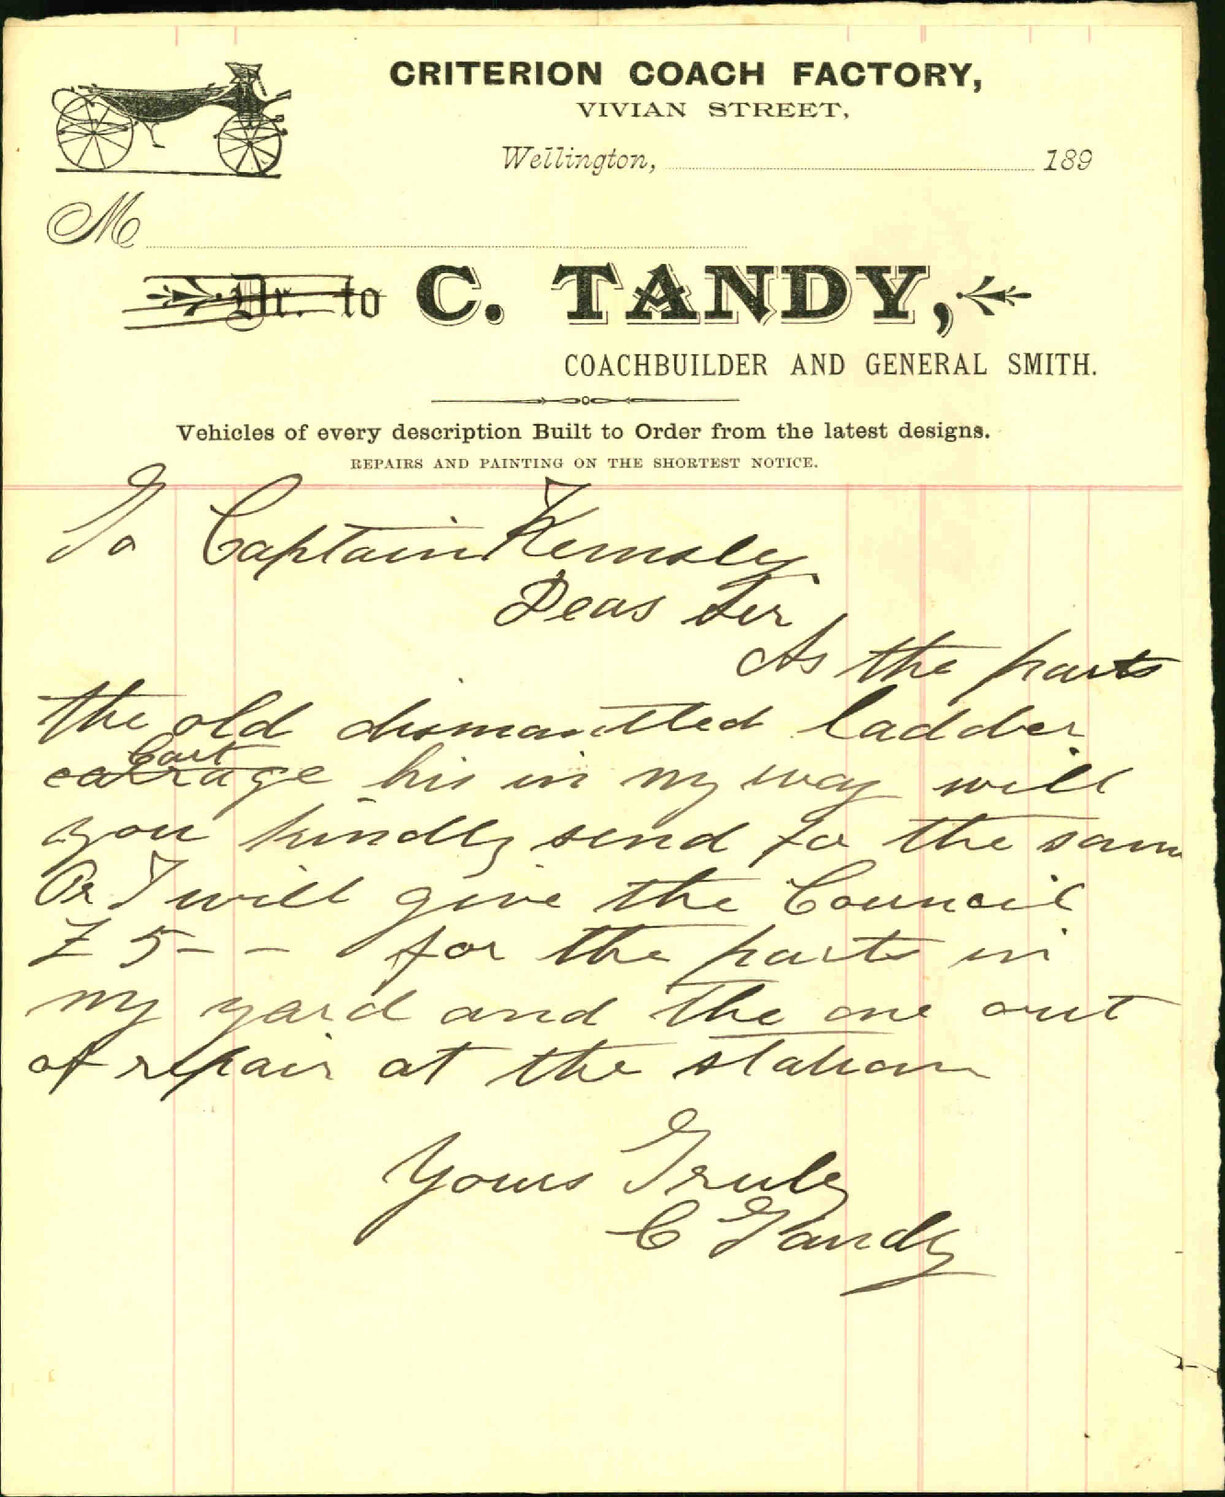 CRITERION COACH FACTORY,
VIVIAN STREET,
Wellington, 189
M
Dr. to C. TANDY,
COACHBUILDER AND GENERAL SMITH.
Vehicles of every description Built to Order from the latest designs.
REPAIRS AND PAINTING ON THE SHORTEST NOTICE.
To Captain Kemsley
Dear Sir
As the parts
the old dismantled ladder
Cart
carrage his in my way will
you kindly send fo the same
Or I will give the Council
£ 5 - - for the parts in
my yard and the one out
of repair at the station
Yours Truly
C Tandy